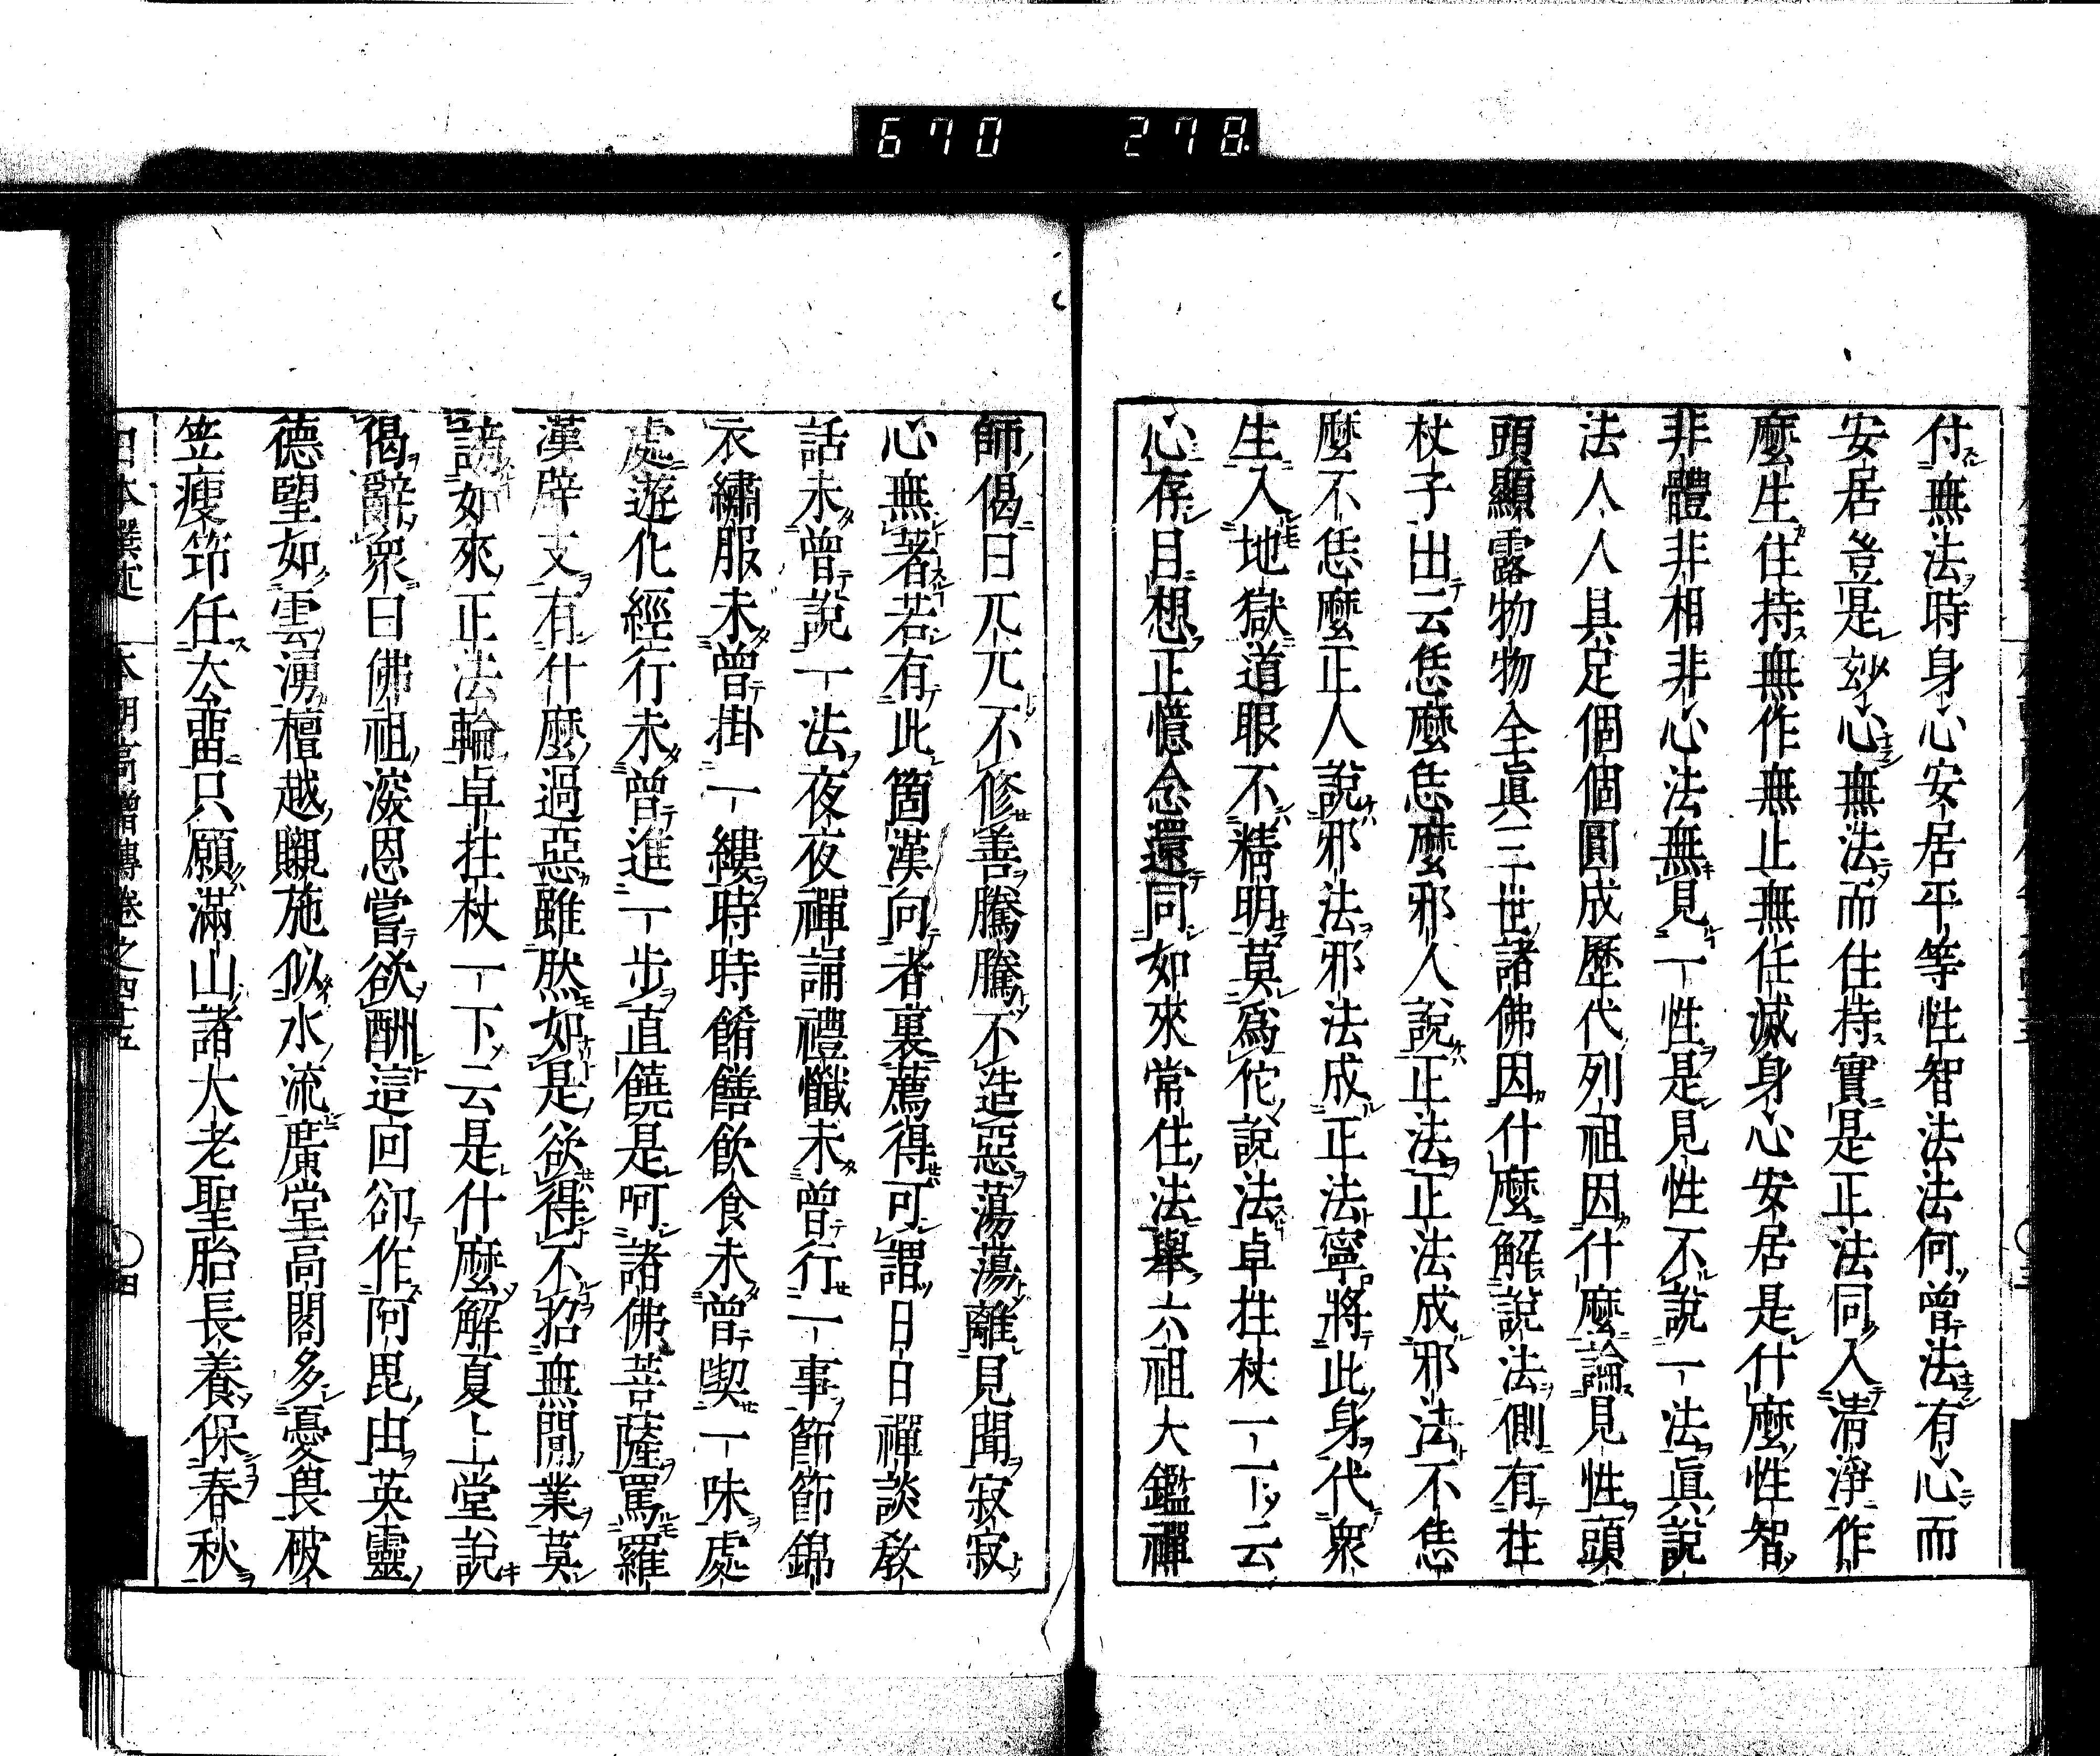 670 278
付無法時身心安居平等性智法法何曾法有心而
安居豈是玅心無法而住持實是正法同入清淨作
麼生住持無作無止無任滅身心安居是什麼性智
非體非相非心法無見一性是見性不說一法眞說
法人人具足個個圓成歷代列祖因什麼論見性頭
頭顯露物物全眞三世諸佛因什麼解說法側有拄
杖子出云恁麼恁麼邪人說正法正法成邪法不恁
麼不恁麼正人說邪法邪法成正法寧將此身代衆
生入地獄道眼不精明莫爲佗說法卓拄杖一下云
心存目想正憶念還同如來常住法擧六祖大鑑禪
師偈曰兀兀不修善騰騰不造惡蕩蕩離見聞寂寂
心無著若有此箇漢向者裏薦得可謂日日禪談敎
話未曾說一法夜夜禪誦禮懺未曾行一事節節錦
衣繡服未曾掛一縷時時餚饍飮食未曾喫一味處
處遊化經行未曾進一步直饒是呵諸佛菩薩罵羅
漢辟支有什麼過惡雖然如是欲得不招無間業莫
謗如來正法輪卓拄杖一下云是什麼解夏上堂說
偈辭衆曰佛祖深恩嘗欲酬這回卻作阿毘由英靈
德望如雲湧檀越嚫施似水流廣堂高閣多憂畏破
笠瘦筇任去畱只願滿山諸大老聖胎長養保春秋
日本撰述 本朝高僧傳卷之四十五 四